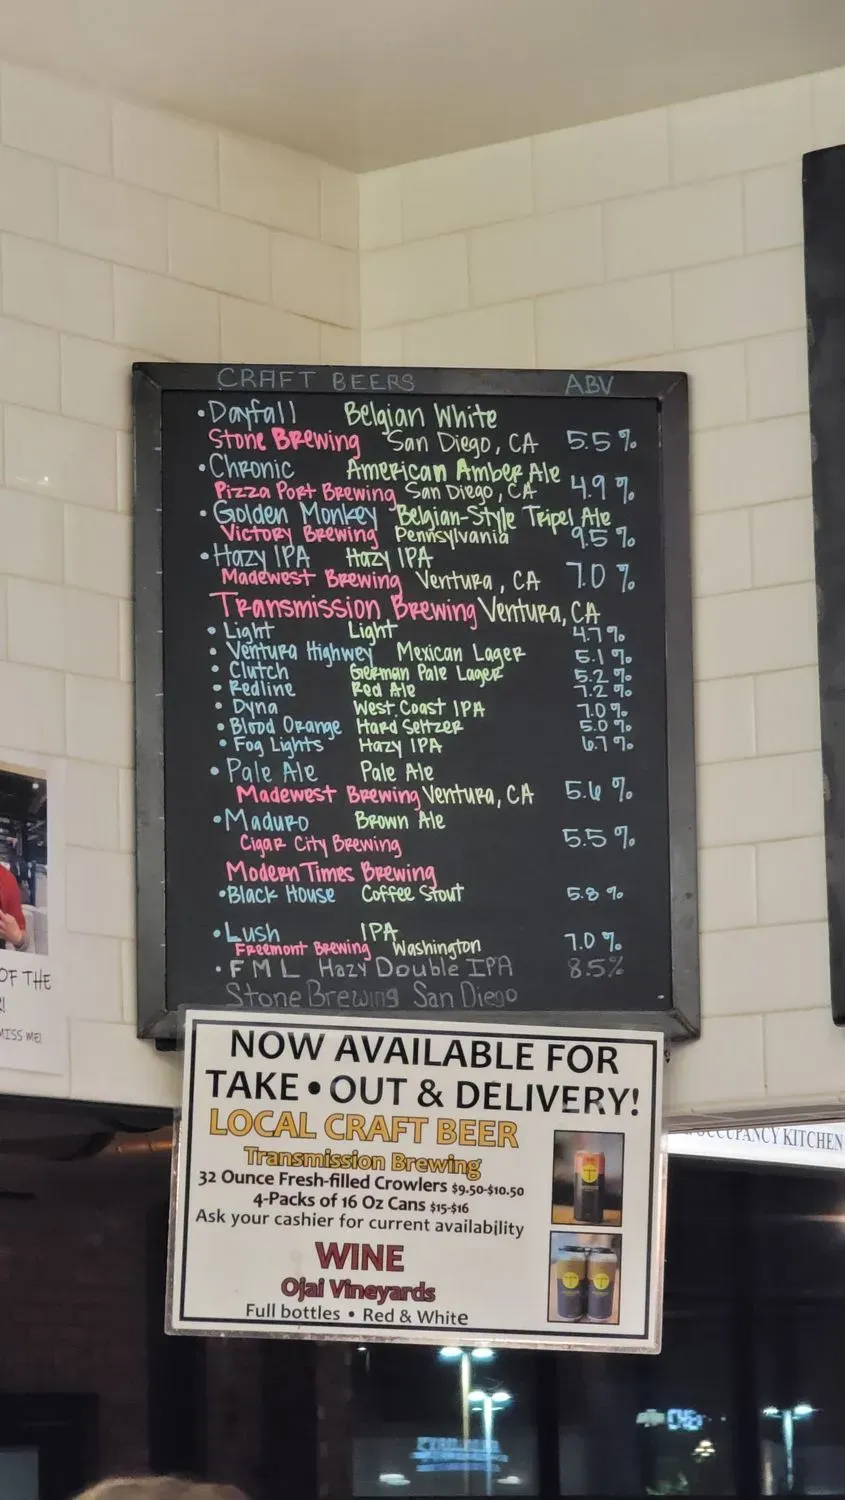 CRAFT BEERS ABV
•Dayfall Belgian White
Stone Brewing San Diego, CA 5.5%
•Chronic American Amber Ale
Pizza Port Brewing San Diego, CA 4.9 %
•Golden Monkey Belgian-Style Tripel Ale
Victory Brewing Pennsylvania 9.5 %
•Hazy IPA Hazy IPA
Madewest Brewing Ventura, CA 7.0 %
Transmission Brewing Ventura, CA
• Light Light 4.7%
• Ventura Highwey Mexican Lager 5.1%
• Clutch German Pale Lager 5.2%
• Redline Red Ale 7.2%
• Dyna West Coast IPA 7.0%
• Blood Orange Hard Seltzer 5.0%
• Fog Lights Hazy IPA 6.7%
• Pale Ale Pale Ale
Madewest Brewing Ventura, CA 5.6 %
•Maduro Brown Ale
Cigar City Brewing 5.5 %
Modern Times Brewing
•Black House Coffee Stout 5.8 %
•Lush IPA
Freemont Brewing Washington 7.0 %
• FML Hazy Double IPA 8.5%
Stone Brewing San Diego
NOW AVAILABLE FOR
TAKE • OUT & DELIVERY!
LOCAL CRAFT BEER
Transmission Brewing
32 Ounce Fresh-filled Crowlers $9.50-$10.50
4-Packs of 16 Oz Cans $15-$16
Ask your cashier for current availability
WINE
Ojai Vineyards
Full bottles • Red & White
OF THE
MISS ME!
OCCUPANCY KITCHEN